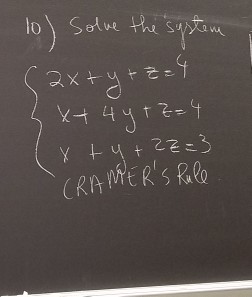 10) Solve the system
2x + y + z = 4
x + 4y + z = 4
x + y + 2z = 3
CRAMER'S Rule